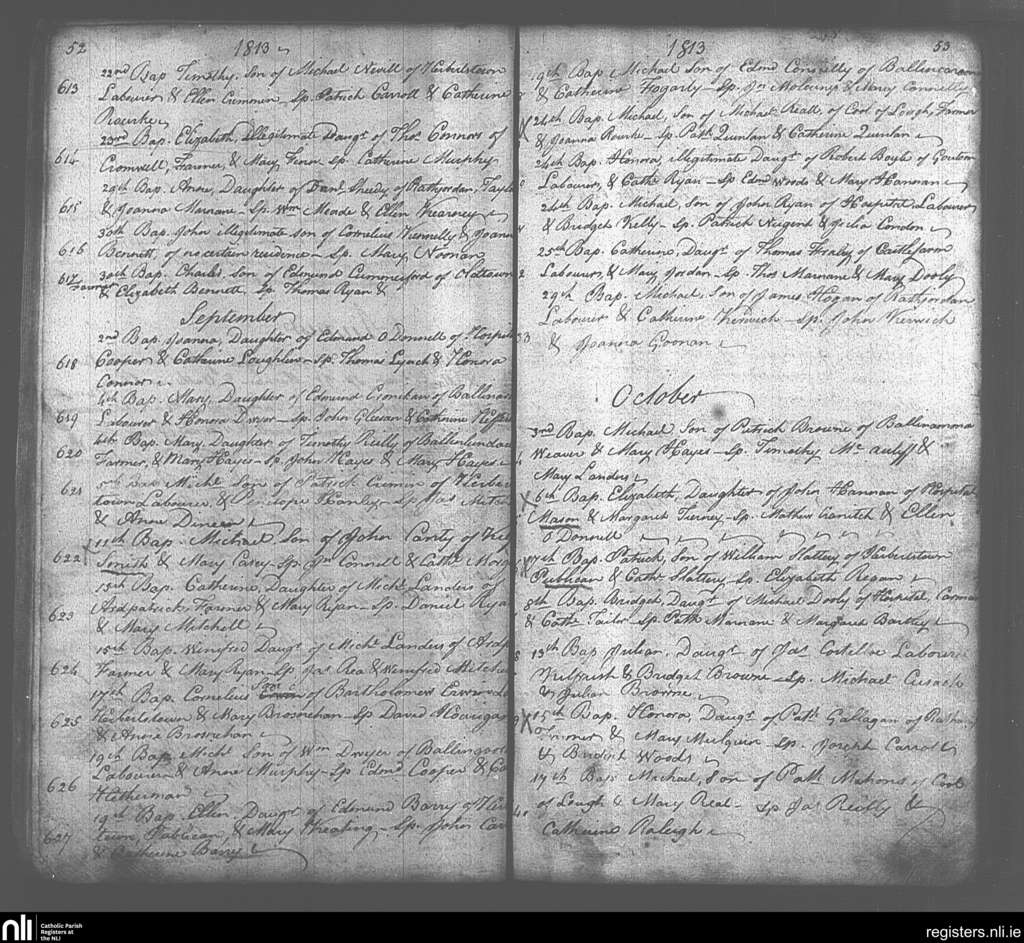 52
1813
22nd Bap Timothy, Son of Michael Nevill of Herbertstown
613
Labourer & Ellen Cummin, Sp. Patrick Carroll & Catherine
Rourke
23rd Bap. Elizabeth, Illegitimate Daugt. of Thos. Connors of
614
Cromwell, Farmer, & Mary Finn Sp. Catherine Murphy
29th Bap. Anne, Daughter of Danl. Sheedy of Rathjordan, Taylor
615
& Joanna Marnane - Sp. Wm. Meade & Ellen Kearney
30th Bap. John illegitimate son of Cornelius Kennelly & Joanna
616
Bennett, of no certain residence - Sp. Mary Noonan
617
30th Bap. Charles Son of Edmund Cummerford of
Farmer & Elizabeth Bennett, Sp. Thomas Ryan &
September
2nd Bap. Joanna, Daughter of Edmund O Donnell of Hospital
618
Cooper & Catharine Loughlin - Sp. Thomas Lynch & Honora
Connor
4th Bap. Mary Daughter of Edmund
619
Labourer & Honora Dwyer - Sp. John Gleeson & Catherine
6th Bap. Mary Daughter of Timothy Reilly of
620
Farmer, & Mary Hayes - Sp. John Hayes & Mary Hayes
Bap. Michl. Son of Patrick Cumin of Herberts
621
town, Labourer, & Penelope Hanley - Sp. Jas.
& Anne Dineen
11th Bap. Michael Son of John Canty of
622 X
Smith & Mary Carey - Sp. Jn. Connell & Cathe.
15th Bap. Catherine, Daughter of Michl. Landers of
623
Ardpatrick, Farmer & Mary Ryan - Sp. Daniel Ryan
& Mary Mitchell
15th Bap. Winifred Daugt. of Michl. Landers of
624
Farmer & Mary Ryan - Sp. Jas. Rea & Winifred Mitchell
17th Bap. Cornelius son of Bartholomew
625
Herbertstown & Mary Brosnehan - Sp David
& Anne Brosnehan
19th Bap. Michl. Son of Wm Dwyer of
626
Labourer & Anne Murphy - Sp Edmd. Cooper &
Hetherman
19th Bap. Ellen Daugt. of Edmund Barry of
627
town, Publican, & Mary Keating - Sp. John
& Catherine Barry
1813
53
19th Bap. Michael Son of Edmd. Connelly of
& Catherine Hogarty - Sp. Jn. & Mary Connelly
X 24th Bap. Michael, Son of Michael Reall, of Cool of Lough, Farmer
& Joanna Rourke - Sp. Patk Quinlan & Catherine Quinlan
24th Bap. Honora, Illegitimate Daugt. of Robert Boyle of
Labourer, & Cathe. Ryan - Sp Edmd Woods & Mary Hannan
24th Bap. Michael, Son of John Ryan of Hospital, Labourer
& Bridget Kelly - Sp. Patrick Nugent & Condon
25th Bap. Catherine, Daugt. of Thomas of Castlefarm
Labourer, & Mary Jordan - Sp. Thos Marnane & Mary Dooly
29th Bap. Michael, Son of James Hogan of Rathjordan
Labourer & Catherine Kerwick - Sp. John Kerwick
33
& Joanna Goonan
October
3rd Bap. Michael Son of Patrick Browne of
Weaver & Mary Hayes - Sp. Timothy Mc auliff &
Mary Landers
X 6th Bap. Elizabeth, Daughter of John Hannan of Hospital
Mason & Margaret Tierney - Sp. Mathew & Ellen
O Donnell
X 7th Bap. Patrick, Son of William Slattery of Herbertstown
Publican & Cathe. Slattery Sp. Elizabeth Regan
8th Bap. Bridget, Daugt. of Michael Dooly of Hospital, Carman
& Cathe Tailor Sp. Patk Marnane & Margaret Bartley
13th Bap. Julian, Daugt. of Jas Costelloe Labourer
& Bridget Browne - Sp. Michael Cusack
& Julian Browne
X 15th Bap. Honora, Daugt. of Patk. Gallagan of
Farmer & Mary - Sp. Joseph Carroll
& Bridget Woods
17th Bap. Michael, Son of Patk Mahony of Cool
of Lough & Mary Real - Sp Jas Reilly &
Catherine Raleigh
nli
Catholic Parish
Registers at
the NLI
registers.nli.ie